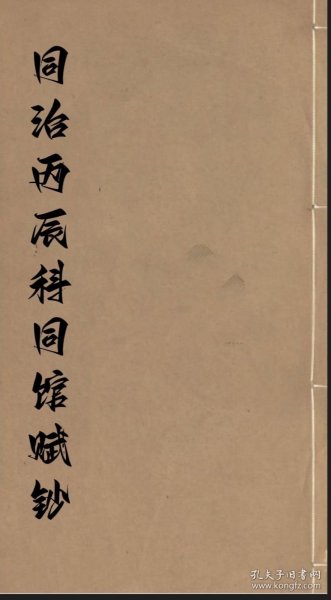 同治丙辰科同馆赋钞
孔夫子旧书网
www.kongfz.com